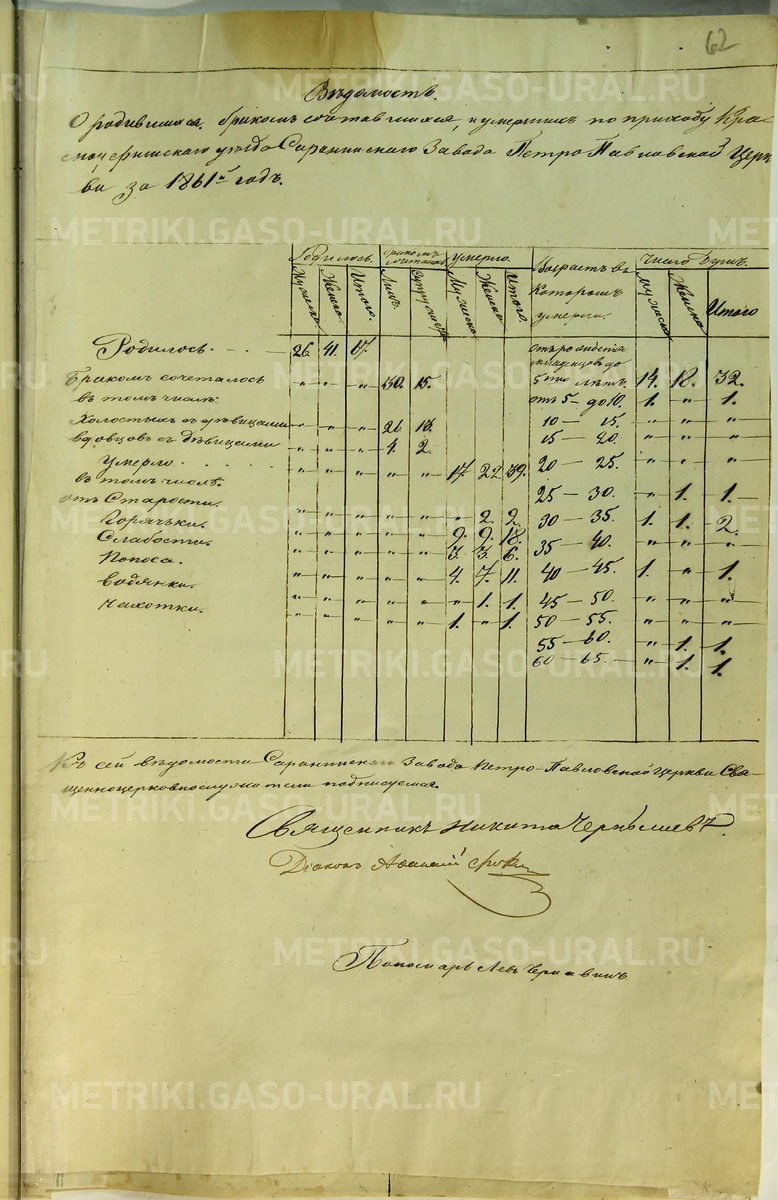 62
Вѣдомость.
О родившихся, бракомъ сочетавшихся, и умершихъ по приходу Кра-
сноуфимскаго уѣзда Саранинскаго Завода Петро Павловской Церк-
ви за 1861й годъ.
Родилось. бракомъ сочеталось умерло. Возрастъ въ которомъ умерли. Число Душъ.
Мужеска Женска Итого. Лицъ. Супружествъ Мужеска Женска Итого. Мужеска Женска Итого
Родилось 26 41 17. отъ рождения младенцовъ до
Бракомъ сочеталось " " " 30. 15. 5ти лѣтъ. 14. 18. 32.
въ томъ числѣ: отъ 5 - до 10. 1. " 1.
Холостыхъ съ дѣвицами " " " 26 13. 10 — 15. " " "
вдовцовъ съ дѣвицами " " " 4. 2. 15 — 20. " " "
Умерло. " " " " " 17. 22 39. 20 — 25. " " "
въ томъ числѣ: 25 — 30. " 1. 1.
отъ Старости. " " " " " " 2. 2. 30 — 35. 1. 1. 2.
Горячьки. " " " " " 9. 9. 18. 35 — 40. " " "
Слабости. " " " " " 3. 3. 6.
Поноса. " " " " " 4. 7. 11. 40 — 45. 1. " 1.
водянки. " " " " " " 1. 1. 45 — 50. " " "
чахотки. " " " " " 1. " 1. 50 — 55. " " "
55 — 60. " 1. 1.
60 — 65. " 1. 1.
Къ сей вѣдомости Саранинскаго Завода Петро-Павловской Церкви Свя-
щенноцерковнослужители подписуемся.
Священникъ Никита
Діаконъ
Пономарь Левъ
METRIKI.GASO-URAL.RU